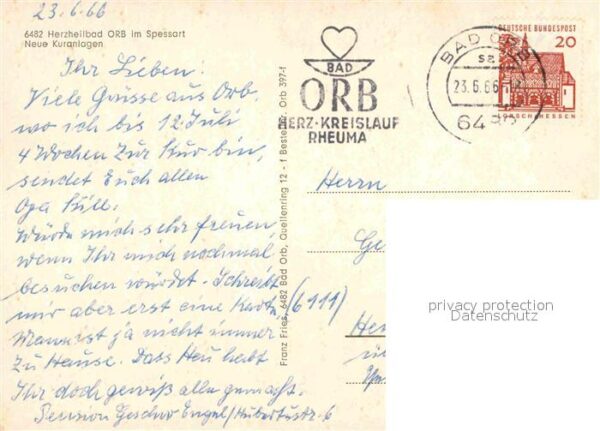 23.6.66
6482 Herzheilbad ORB im Spessart
Neue Kuranlagen
Ihr Lieben.
Viele Grüsse aus Orb,
wo ich bis 12. Juli
4 Wochen zur Kur bin,
sendet Euch allen
Opa
Würde mich sehr freuen,
wenn Ihr mich nochmal
besuchen würdet. Schreibt
mir aber erst eine Karte,
Man ist ja nicht immer
zu Hause. Dass Heu habt
Ihr doch gewiß alle gemacht.
Pension Geschw Engel/Hubertusstr. 6
Franz Fries, 6482 Bad Orb, Quellenring 12 - f Bestell-Nr. Orb 397-f
BAD
ORB
HERZ-KREISLAUF
RHEUMA
BAD ORB
23.6.66
DEUTSCHE BUNDESPOST
20
LORSCH/HESSEN
Herrn
Ge
(6111)
privacy protection
Datenschutz